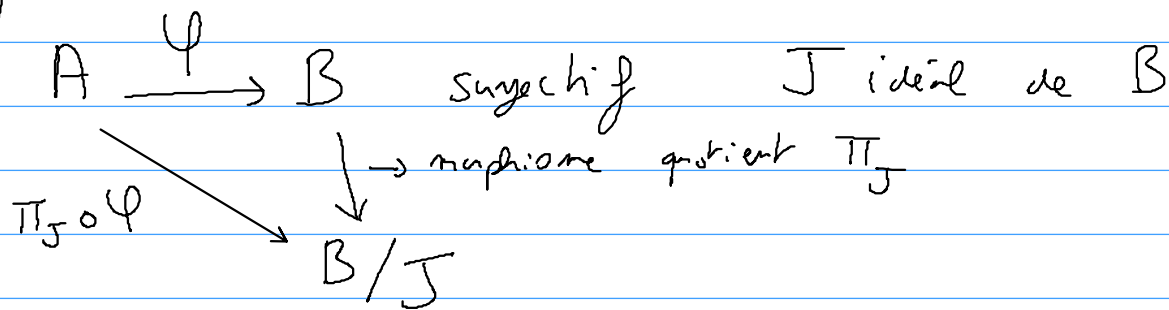 A φ B surjectif J idéal de B
→ morphisme quotient π_J
π_J ∘ φ
B/J